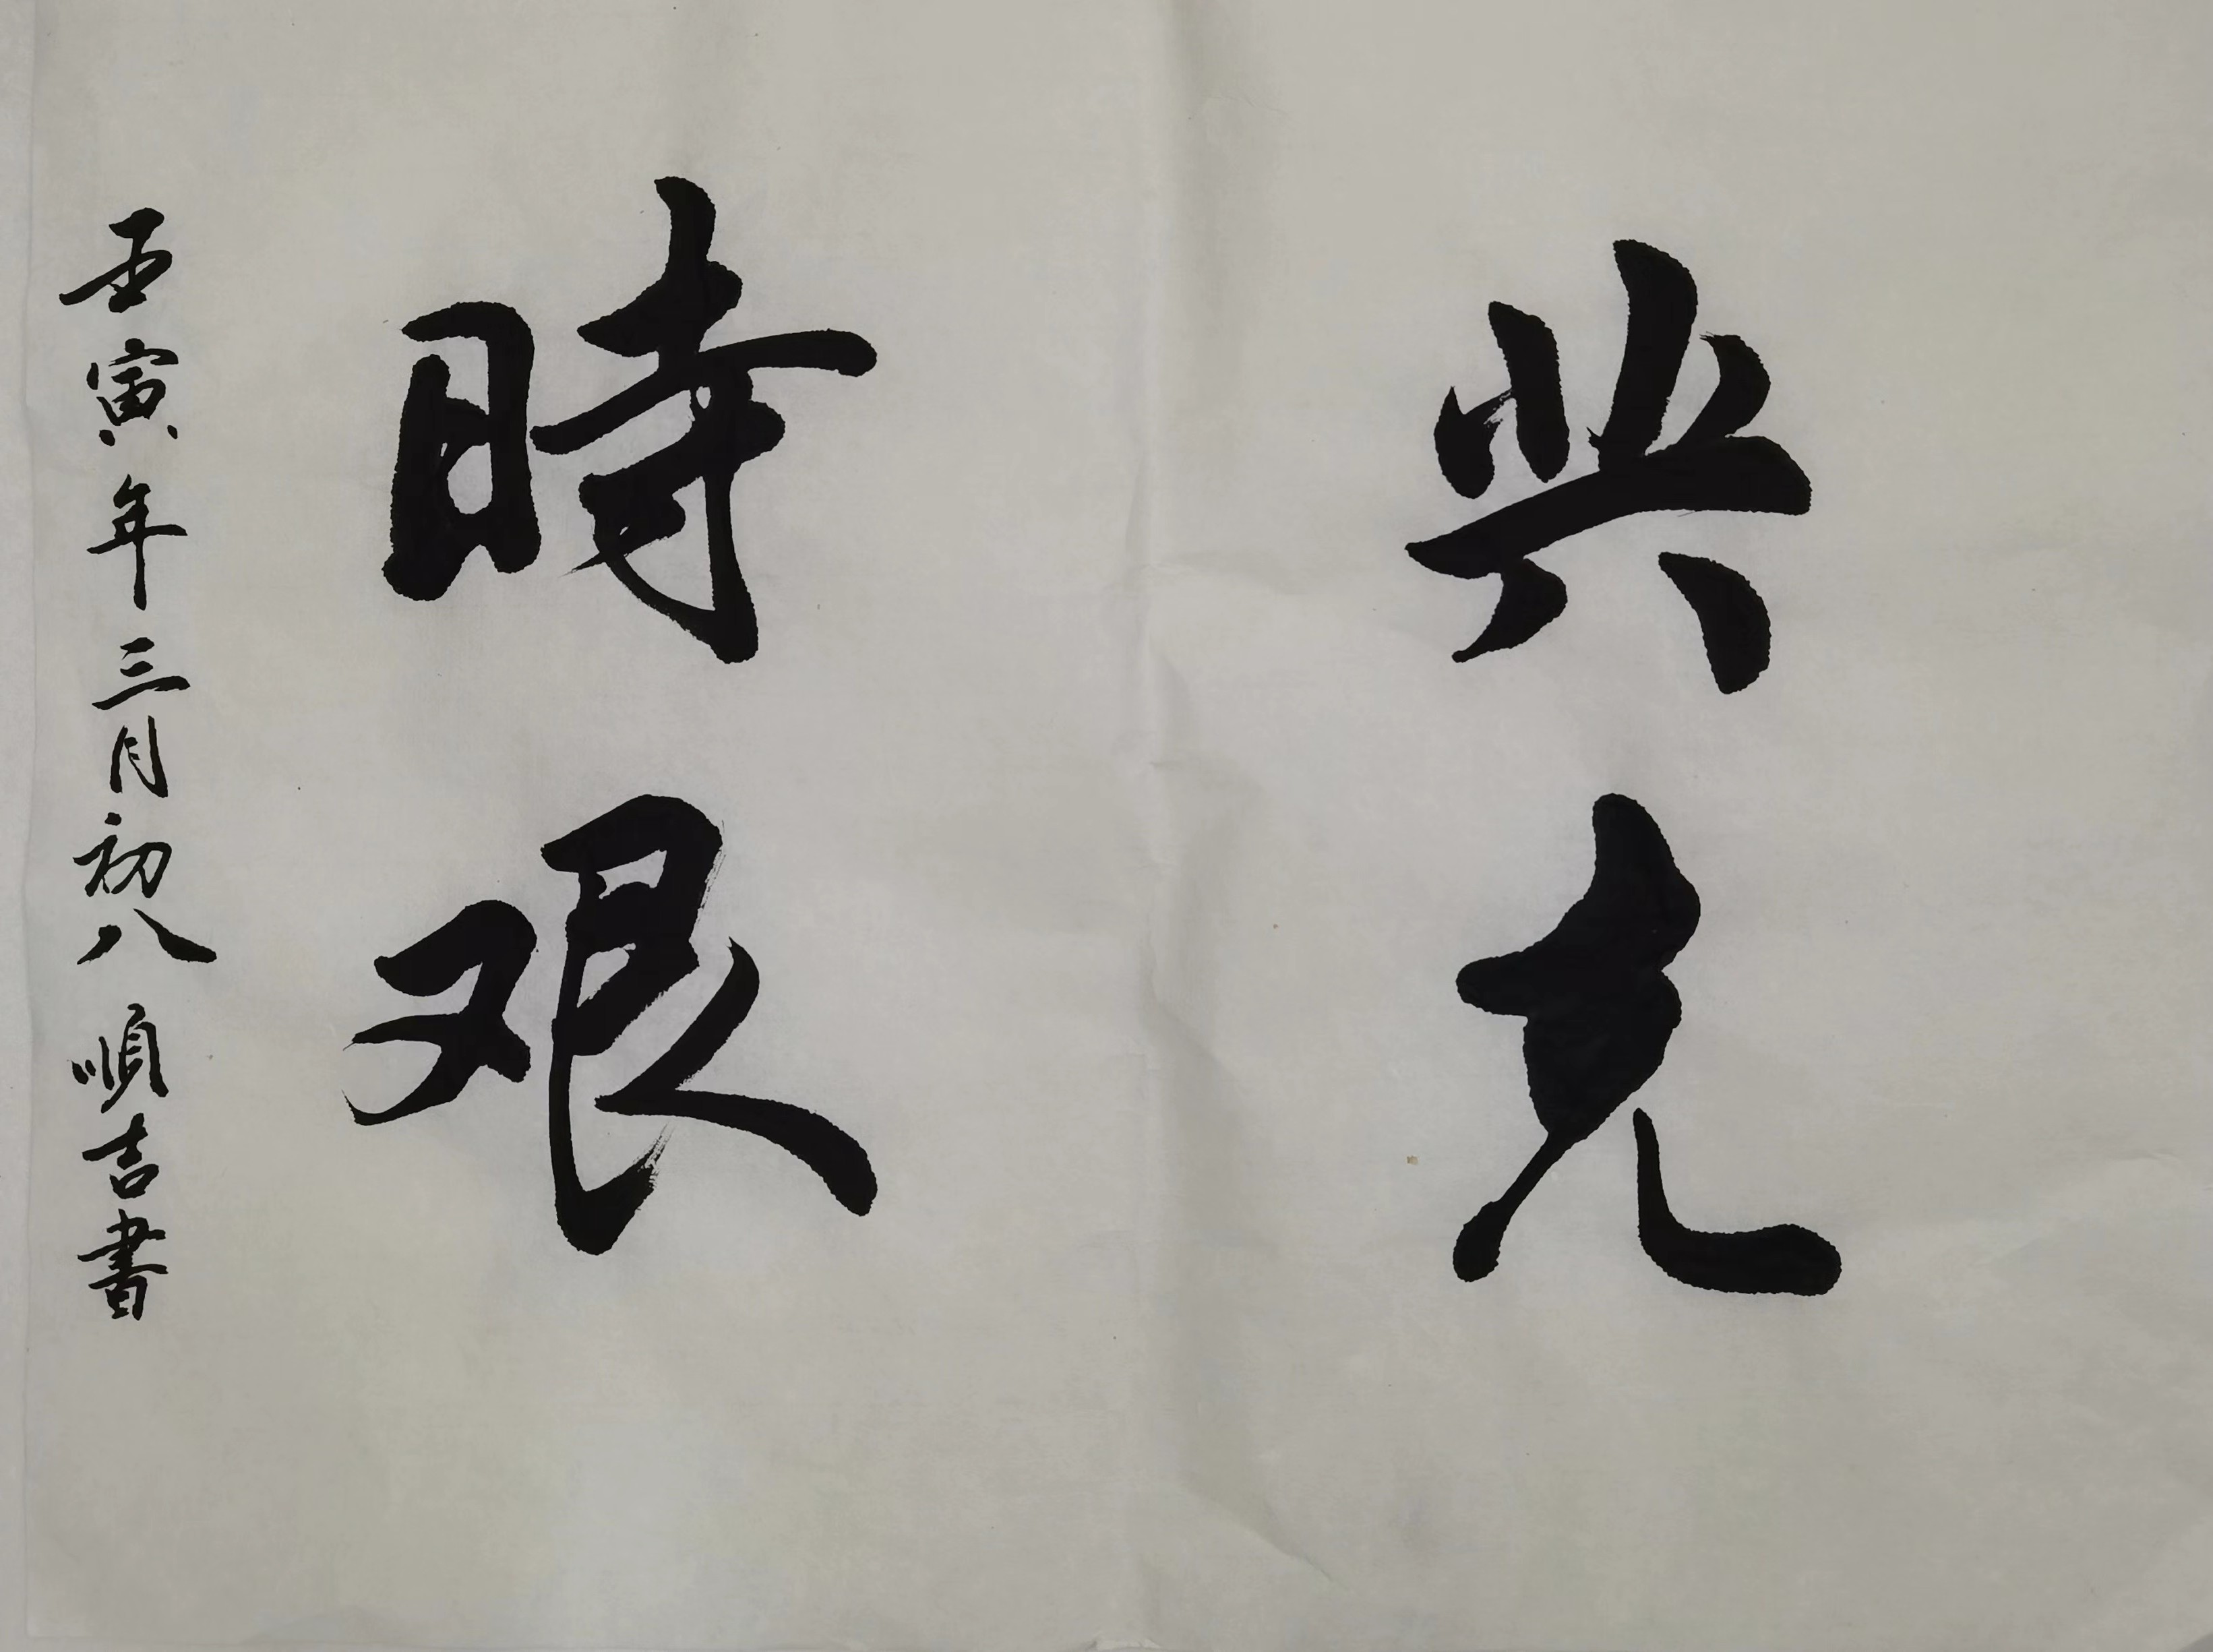 共克
時艰
壬寅年三月初八 順吉書